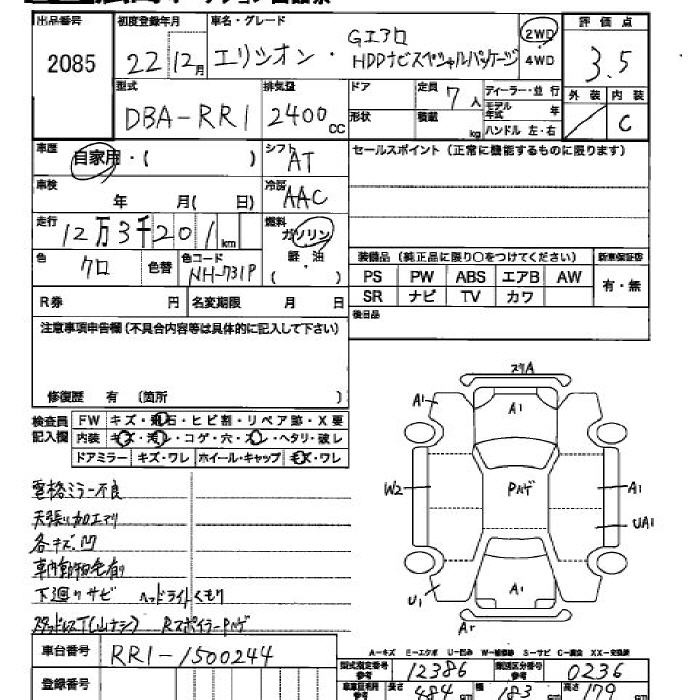 出品番号 初度登録年月 車名・グレード 評価点
2085 22 12月 エリシオン・ Gエアロ HDDナビスペシャルパッケージ 2WD 4WD 3.5
型式 排気量 ドア 定員 7人 ディーラー・並行 外装 内装
DBA-RR1 2400cc 形状 積載 kg モデル年式 年 ハンドル 左・右 C
車歴 自家用・( ) シフト AT セールスポイント(正常に機能するものに限ります)
車検 年 月( 日) 冷房 AAC
走行 12万3千201km 燃料 ガソリン 軽・油 ( )
色 クロ 色替 色コード NH-731P 装備品(純正品に限り○をつけてください) 新車保証書
PS PW ABS エアB AW 有・無
SR ナビ TV カワ
R券 円 名変期限 月 日 後日品
注意事項申告欄(不具合内容等は具体的に記入して下さい)
修復歴 有 (箇所 )
検査員記入欄 FW キズ・飛石・ヒビ割・リペア跡・X要
内装 キズ・汚レ・コゲ・穴・スレ・ヘタリ・破レ
ドアミラー キズ・ワレ ホイール・キャップ キズ・ワレ
電格ミラー不良
天張り加工アリ
各キズ.凹
車内動物毛有り
下廻りサビ ヘッドライトくもり
スタッドレスT(山ナシ) RスポイラーPハゲ
スリA
A1 A1
W2 Pハゲ A1
UA1
U1 A1
A1
A-キズ E-エクボ U-凹み W-補修跡 S-サビ C-腐食 XX-交換済
車台番号 RR1-1500244 型式指定番号 参考 12386 類別区分番号 参考 0236
登録番号 長さ 484cm 幅 183cm 高さ 179cm